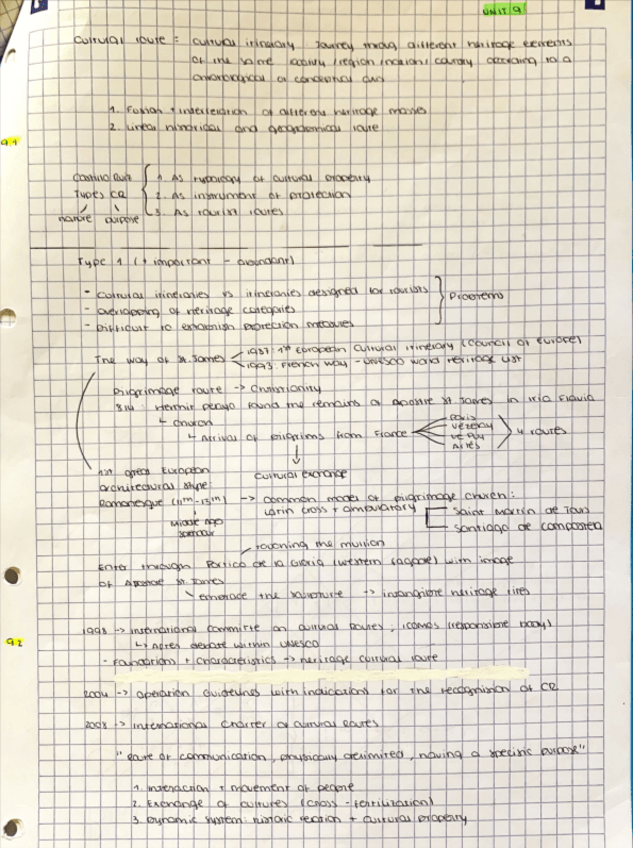 UNIT 9
Cultural route = cultural itinerary Journey throug different heritage elements
of the same /region/nation/ country according to a
chronological or conceptual
1. Fusion + interrelation of different heritage
2. Linear historical and geographical route
9.1
1. As typology of cultural property
Types CR 2. As instrument of protection
nature purpose 3. As tourist routes
Type 1 (+ important - abundant)
- Cultural itineraries vs itineraries designed for tourists
- overlapping of heritage categories Problems
- Difficult to establish protection measures
The way of St. James 1987: 1st European Cultural Itinerary (Council of Europe)
1993: French way - UNESCO world heritage List
Pilgrimage route -> Christianity
814: Hermit Pelayo found the remains of Apostle St. James in Iria Flavia
↳ church
↳ Arrival of pilgrims from France Paris
Vezelay 4 routes
Le Puy
Arles
↓
cultural exchange
1st great European
architectural style:
Romanesque (11th-13th) -> common model of pilgrimage church:
Latin cross + ambulatory Saint Martin de Tours
Middle Age Santiago de Compostela
splendour
touching the mullion
Enter through Portico de la Gloria (western façade) with image
of Apostle St. James
embrace the sculpture -> intangible heritage rites
1998 -> International committe on cultural routes, icomos (responsible body)
↳ After debate within UNESCO
9.2
- Foundations + characteristics -> heritage cultural route
-> Operation Guidelines with indications for the recognition of CR
2008 -> International Charter of Cultural Routes
"Route of communication, physically delimited, having a specific purpose"
1. Interaction + movement of people
2. Exchange of cultures (cross-fertilization)
3. Dynamic system: historic relation + cultural property